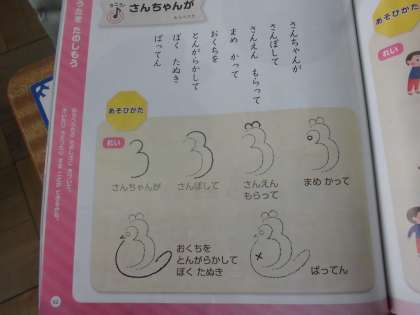 うたを たのしもう
さんちゃんが
さんちゃんが
さんぽして
さんえん もらって
まめ かって
おくちを
とんがらかして
ぼく たぬき
ばってん
あそびかた
れい
さんちゃんが
さんぽして
さんえん
もらって
まめ かって
おくちを
とんがらかして
ぼく たぬき
ばってん
あそびかた
れい